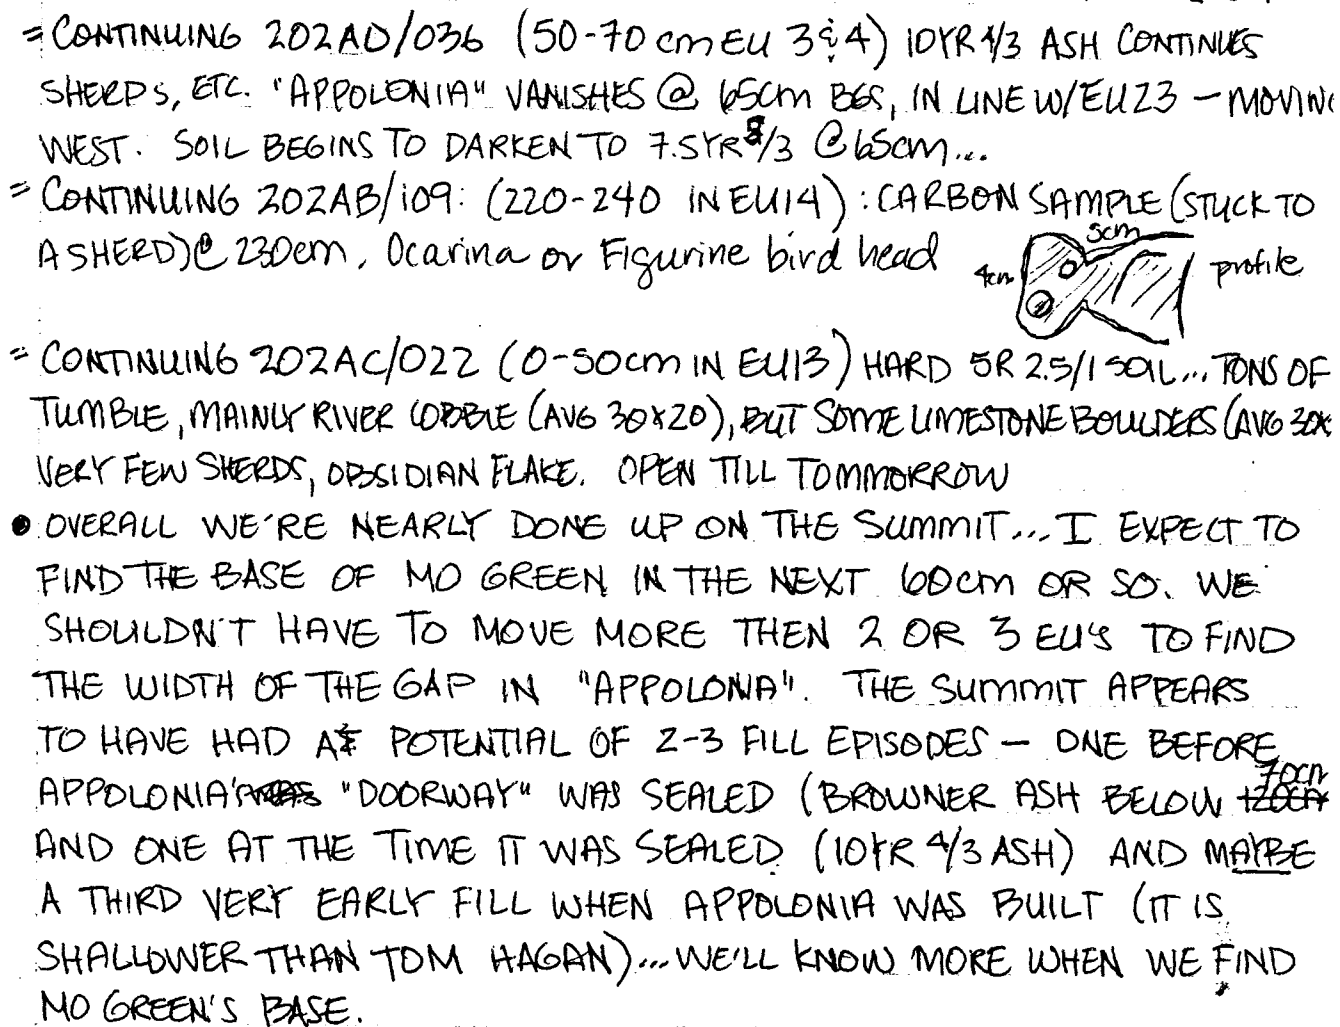 = CONTINUING 202AD/036 (50-70 cm EU 3 & 4) 10YR 4/3 ASH CONTINUES
SHERDS, ETC. "APPOLONIA" VANISHES @ 65cm BGS, IN LINE W/EU23 – MOVING
WEST. SOIL BEGINS TO DARKEN TO 7.5YR /3 @ 65cm...
= CONTINUING 202AB/109: (220-240 IN EU14) : CARBON SAMPLE (STUCK TO
A SHERD) @ 230cm, Ocarina or Figurine bird head
5cm
4cm
profile
= CONTINUING 202AC/022 (0-50cm IN EU13) HARD 5R 2.5/1 SOIL... TONS OF
TUMBLE, MAINLY RIVER COBBLE (AVG 30x20), BUT SOME LIMESTONE BOULDERS (AVG 30x
VERY FEW SHERDS, OBSIDIAN FLAKE. OPEN TILL TOMMORROW
• OVERALL WE'RE NEARLY DONE UP ON THE SUMMIT... I EXPECT TO
FIND THE BASE OF MO GREEN IN THE NEXT 60cm OR SO. WE
SHOULDN'T HAVE TO MOVE MORE THEN 2 OR 3 EU'S TO FIND
THE WIDTH OF THE GAP IN "APPOLONIA". THE SUMMIT APPEARS
TO HAVE HAD A POTENTIAL OF 2-3 FILL EPISODES – ONE BEFORE
APPOLONIA'S "DOORWAY" WAS SEALED (BROWNER ASH BELOW 70cm
AND ONE AT THE TIME IT WAS SEALED (10YR 4/3 ASH) AND MAYBE
A THIRD VERY EARLY FILL WHEN APPOLONIA WAS BUILT (IT IS
SHALLOWER THAN TOM HAGAN)... WE'LL KNOW MORE WHEN WE FIND
MO GREEN'S BASE.